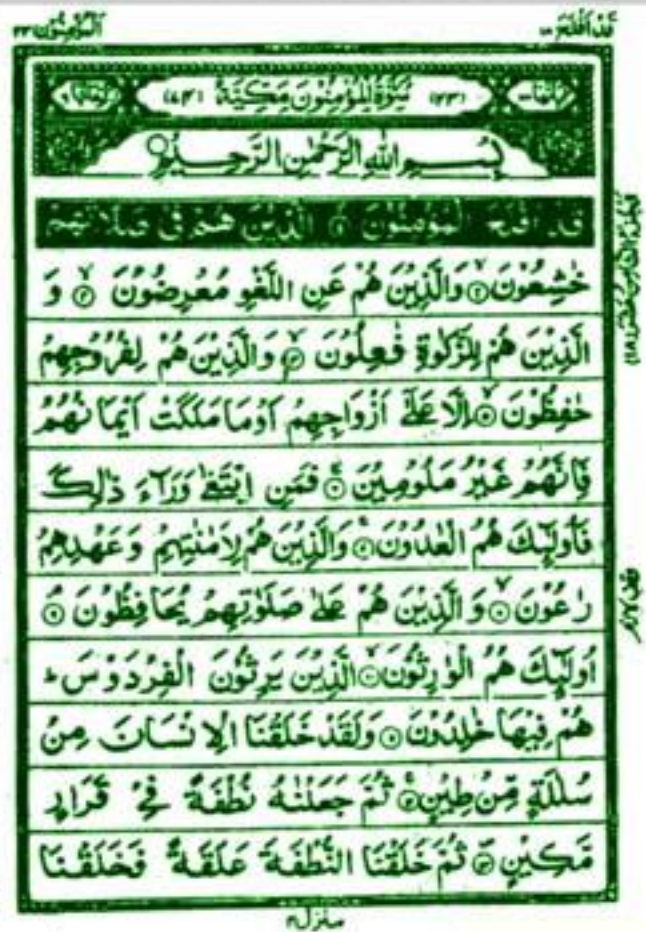 قَدْ اَفْلَحَ ۱۸
الْمُؤْمِنُوْن ۲۳
سُوْرَةُ الْمُؤْمِنُوْنَ مَكِّيَّةٌ (۲۳) (۷۴)
بِسْمِ اللّٰهِ الرَّحْمٰنِ الرَّحِيْمِ
قَدْ اَفْلَحَ الْمُؤْمِنُوْنَ ۱ الَّذِيْنَ هُمْ فِيْ صَلَاتِهِمْ
خٰشِعُوْنَ ۲ وَالَّذِيْنَ هُمْ عَنِ اللَّغْوِ مُعْرِضُوْنَ ۳ وَ
الَّذِيْنَ هُمْ لِلزَّكٰوةِ فٰعِلُوْنَ ۴ وَالَّذِيْنَ هُمْ لِفُرُوْجِهِمْ
حٰفِظُوْنَ ۵ اِلَّا عَلٰٓى اَزْوَاجِهِمْ اَوْ مَا مَلَكَتْ اَيْمَانُهُمْ
فَاِنَّهُمْ غَيْرُ مَلُوْمِيْنَ ۶ فَمَنِ ابْتَغٰى وَرَآءَ ذٰلِكَ
فَاُولٰٓئِكَ هُمُ الْعٰدُوْنَ ۷ وَالَّذِيْنَ هُمْ لِاَمٰنٰتِهِمْ وَعَهْدِهِمْ
رٰعُوْنَ ۸ وَالَّذِيْنَ هُمْ عَلٰى صَلَوٰتِهِمْ يُحَافِظُوْنَ ۹
اُولٰٓئِكَ هُمُ الْوٰرِثُوْنَ ۱۰ الَّذِيْنَ يَرِثُوْنَ الْفِرْدَوْسَ ط
هُمْ فِيْهَا خٰلِدُوْنَ ۱۱ وَلَقَدْ خَلَقْنَا الْاِنْسَانَ مِنْ
سُلٰلَةٍ مِّنْ طِيْنٍ ۱۲ ثُمَّ جَعَلْنٰهُ نُطْفَةً فِيْ قَرَارٍ
مَّكِيْنٍ ۱۳ ثُمَّ خَلَقْنَا النُّطْفَةَ عَلَقَةً فَخَلَقْنَا
منزل ۴